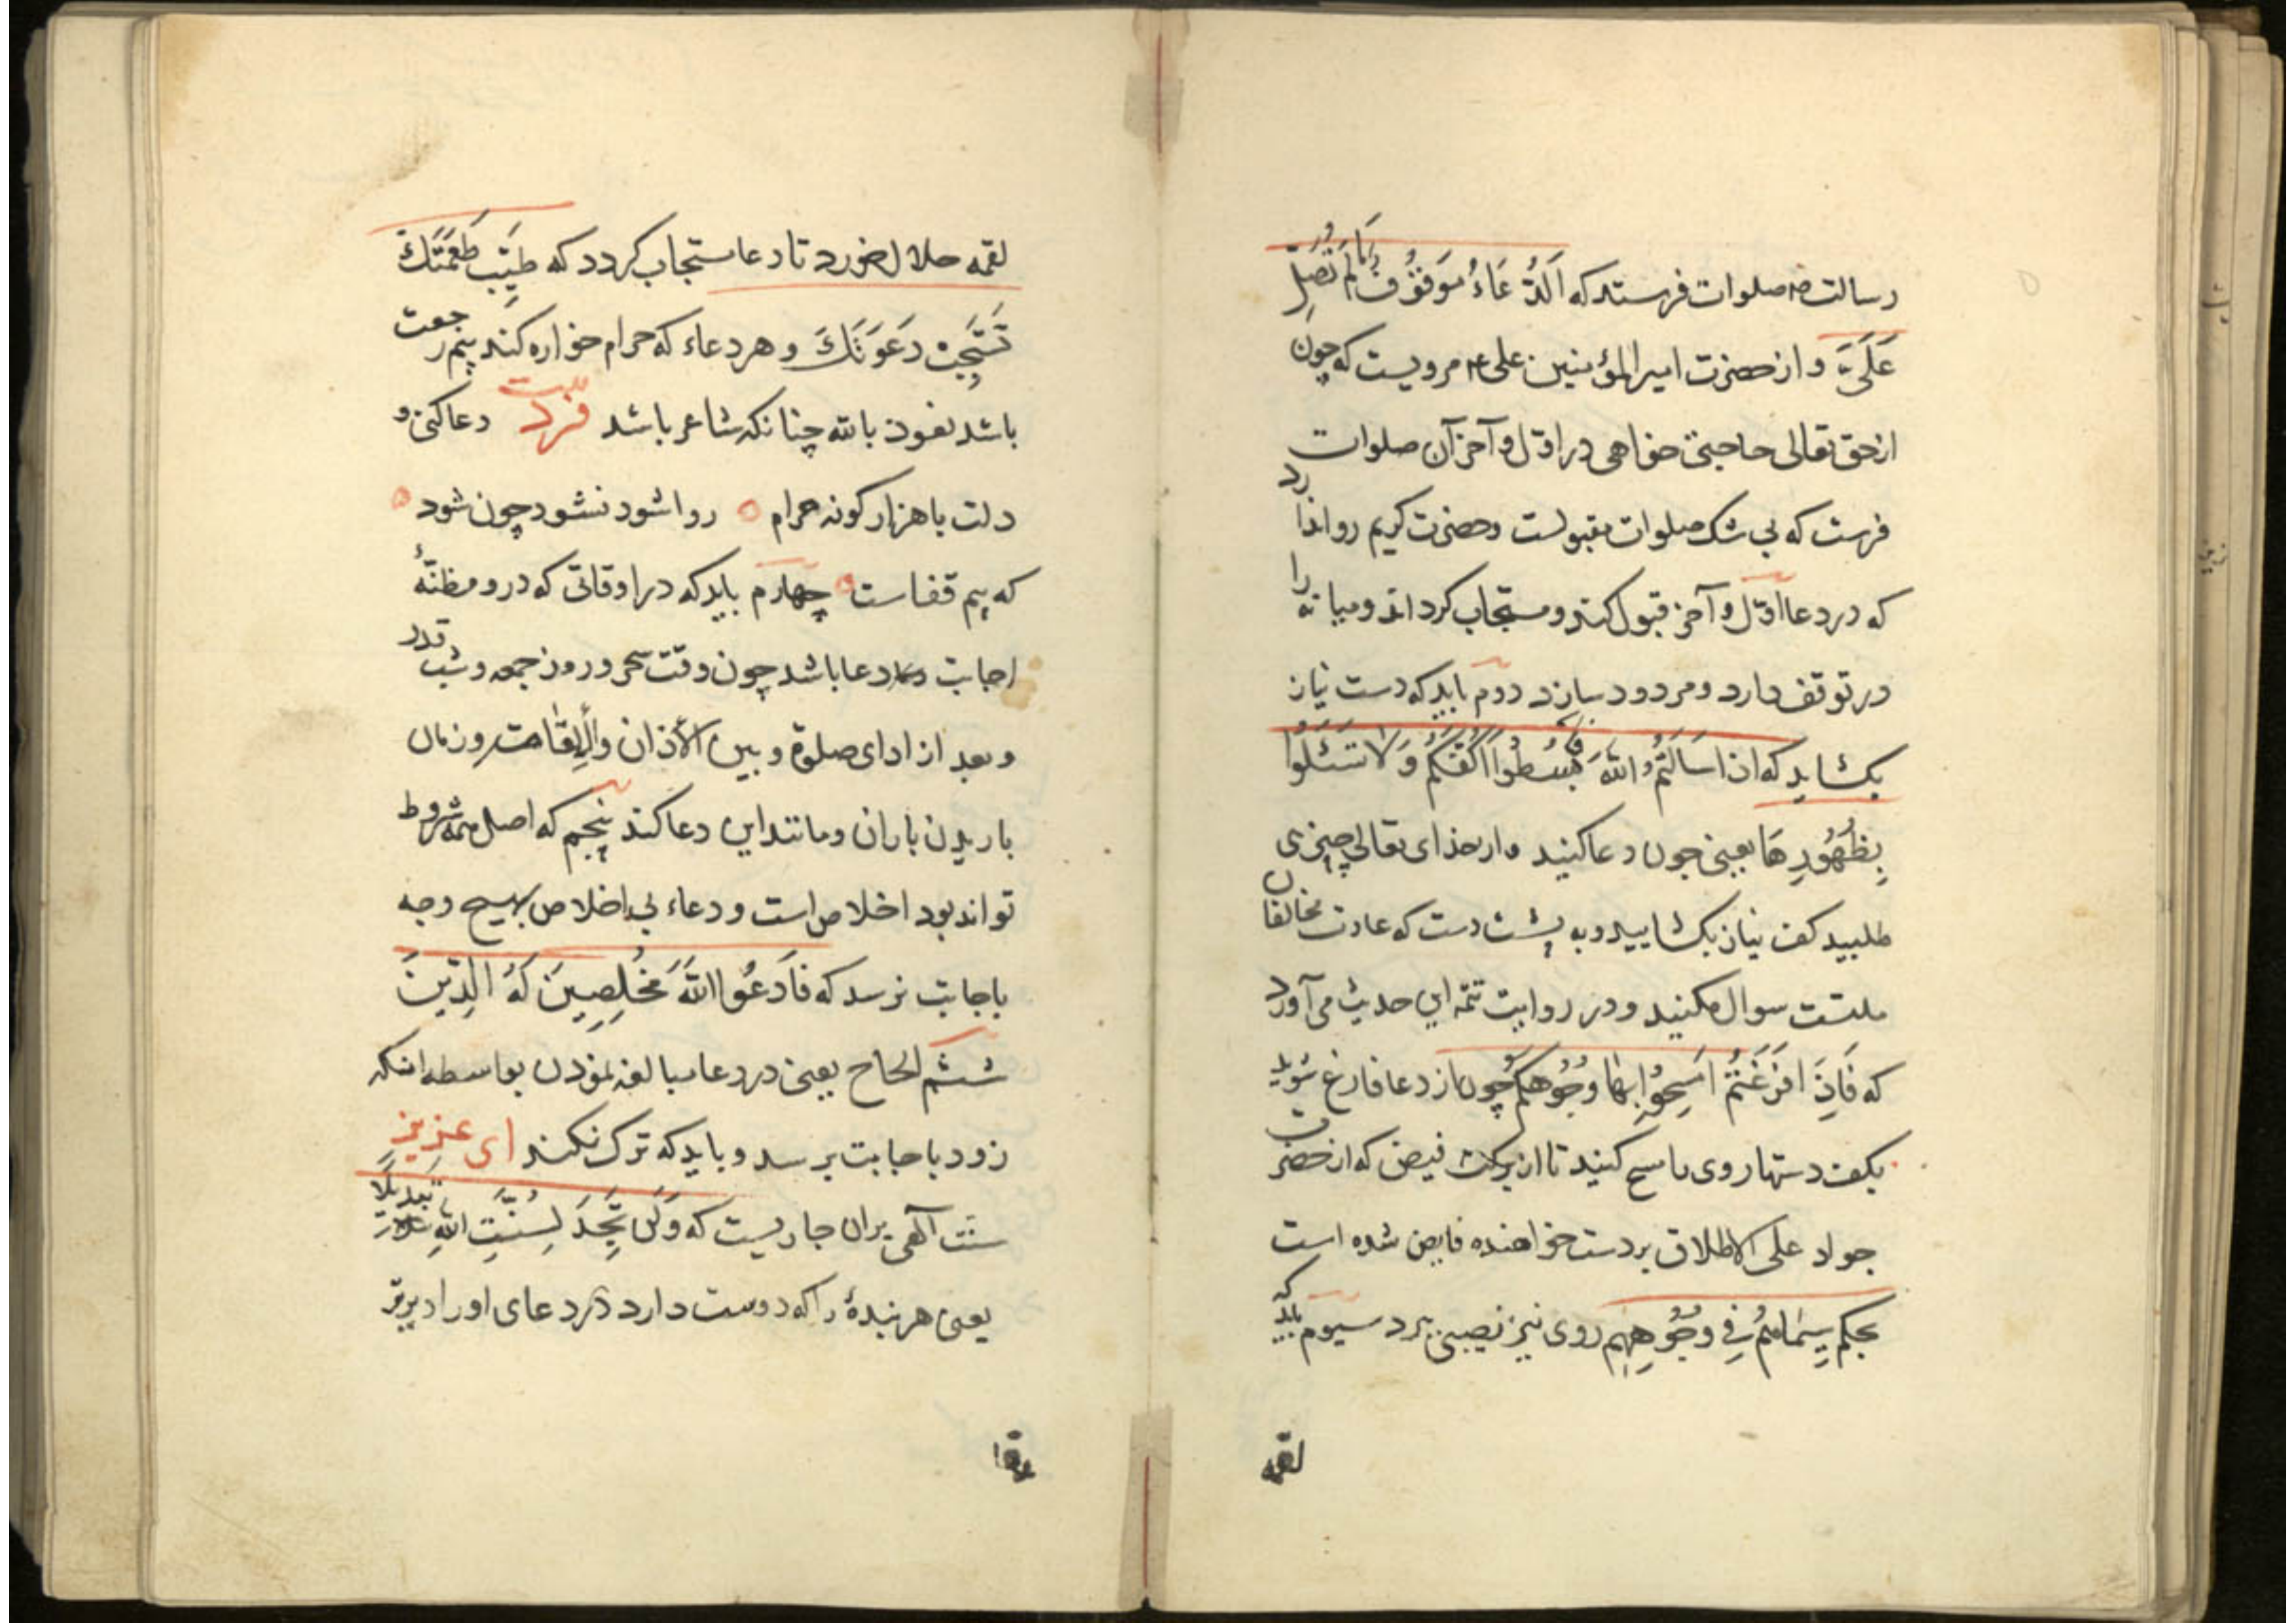 رسالت ص صلوات فرستد که اَلدُّعَاءُ مَوقُوفٌ مَا لَمْ تُصَلِّ
عَلَیَّ و از حضرت امیر المؤمنین علی ع مرویست که چون
از حق تعالی حاجتی خواهی در اوّل و آخر آن صلوات
فرست که بی شک صلوات مقبولست و حضرت کریم روا ندارد
که در دعا اوّل و آخر قبول کند و مستجاب کرداند و میانه را
در توقف دارد و مردود سازد دوم باید که دست نیاز
بکشاید که اذا سَاَلْتُمُ اللّٰهَ فَابْسُطُوا اَکُفَّکُمْ وَ لَا تَسْئَلُوا
بِظُهُورِهَا یعنی چون دعا کنید و از خدای تعالی چیزی
طلبید کف نیاز بکشایید و به پشت دست که عادت مخالفان
ملتست سوال مکنید و در روایت تتمه این حدیث می آورد
که فَاِذَا فَرَغْتُمْ امْسَحُوا بِهَا وُجُوهَکُمْ چون از دعا فارغ شوید
بکف دستها روی را مسح کنید تا از برکت فیض که از حضرت
جواد علی الاطلاق بر دست خواهنده فایض شده است
بحکم سِیمَاهُمْ فِی وُجُوهِهِم روی نیز نصیبی برد سیوم باید که
لقمه
لقمه حلال خورد تا دعا مستجاب کردد که طَیِّب طَعْمَتَكَ
تَسْتَجِبْ دَعْوَتَكَ و هر دعاء که حرام خواره کند بیم رجعت
باشد نعوذ بالله چنانکه شاعر باشد فرد بیت دعا کنی و
دلت با هزار کونه حرام روا شود نشود چون شود
که بیم قفاست چهارم باید که در اوقاتی که درو مظنّهٔ
اجابت دعا باشد چون وقت سحر و روز جمعه و شب قدر
و بعد از ادای صلوة و بین الأذان و الإقامت و زمان
باریدن باران و مانند این دعا کند پنجم که اصل همه شروط
تواند بود اخلاص است و دعاء بی اخلاص بهیچ وجه
باجابت نرسد که فَادْعُوا اللّٰهَ مُخْلِصِینَ لَهُ الدِّینَ
ششم الحاح یعنی در دعا مبالغه نمودن بواسطه انکه
زود باجابت برسد و باید که ترک نکند ای عزیز
سنّت آلهی بران جاریست که وَ لَن تَجِدَ لِسُنَّتِ اللّٰهِ تَبدِیلًا
یعنی هر بندهٔ را که دوست دارد در دعای او را دیرتر